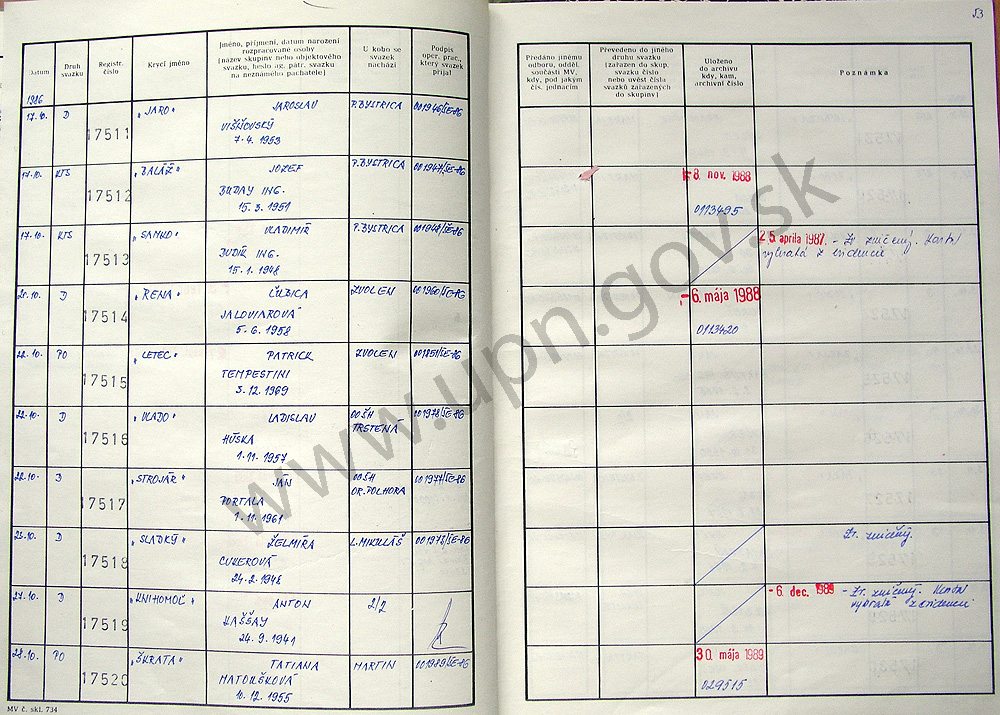 53
Datum
Druh svazku
Registr. číslo
Krycí jméno
Jméno, příjmení, datum narození
rozpracované osoby
(název skupiny nebo objektového
svazku, heslo ag. pátr. svazku
na neznámého pachatele)
U koho se
svazek
nachází
Podpis
oper. prac.,
který svazek
přijal
Předáno jinému
odboru, odděl.
součásti MV,
kdy, pod jakým
čís. jednacím
Převedeno do jiného
druhu svazku
(zařazen do skup.
svazku číslo
nebo uvést čísla
svazků zařazených
do skupiny)
Uloženo
do archivu
kdy, kam,
archivní číslo
Poznámka
1986
17.10. D 17511 "JARO" JAROSLAV P.BYSTRICA 001946/ŠE-86
VIŠŇOVSKÝ
7.4.1953
17.10. KTS 17512 "BALÁŽ" JOZEF P.BYSTRICA 001947/ŠE-86 - 8. nov. 1988
BUDAY ING.
15.3.1951
0113495
17.10. KTS 17513 "SAMKO" VLADIMÍR P.BYSTRICA 001948/ŠE-86
DUDÍK ING.
15.1.1948
25. apríla 1987. - Zv. zničený. Karta
vybratá z evidencie
20.10. D 17514 "RENA" ĽUBICA ZVOLEN 001960/ŠE-86 - 6. mája 1988
JALOVIAROVÁ
5.6.1958
0113420
22.10. PO 17515 "LETEC" PATRICK ZVOLEN 001851/ŠE-86
TEMPESTINI
3.12.1969
22.10. D 17516 "VLADO" LADISLAV OO ŠH TRSTENÁ 001978/ŠE-86
HÚSKA
1.11.1957
22.10. D 17517 "STROJÁR" JÁN OO ŠH OR.POLHORA 001977/ŠE-86
PORTALA
1.11.1961
23.10. D 17518 "SLADKÝ" ŽELMÍRA L.MIKULÁŠ 001973/ŠE-86 Zv. zničený.
CUKEROVÁ
24.2.1948
27.10. D 17519 "KNIHOMOĽ" ANTON 2/2
KAŠŠAY
24.9.1941
- 6. dec. 1989 - Zv. zničený. Karta
vybratá z evidencie
28.10. PO 17520 "ŠKRATA" TATIANA MARTIN 001989/ŠE-86 30. mája 1989
MATOUŠKOVÁ
10.12.1955
029515
MV č. skl. 734
www.upn.gov.sk